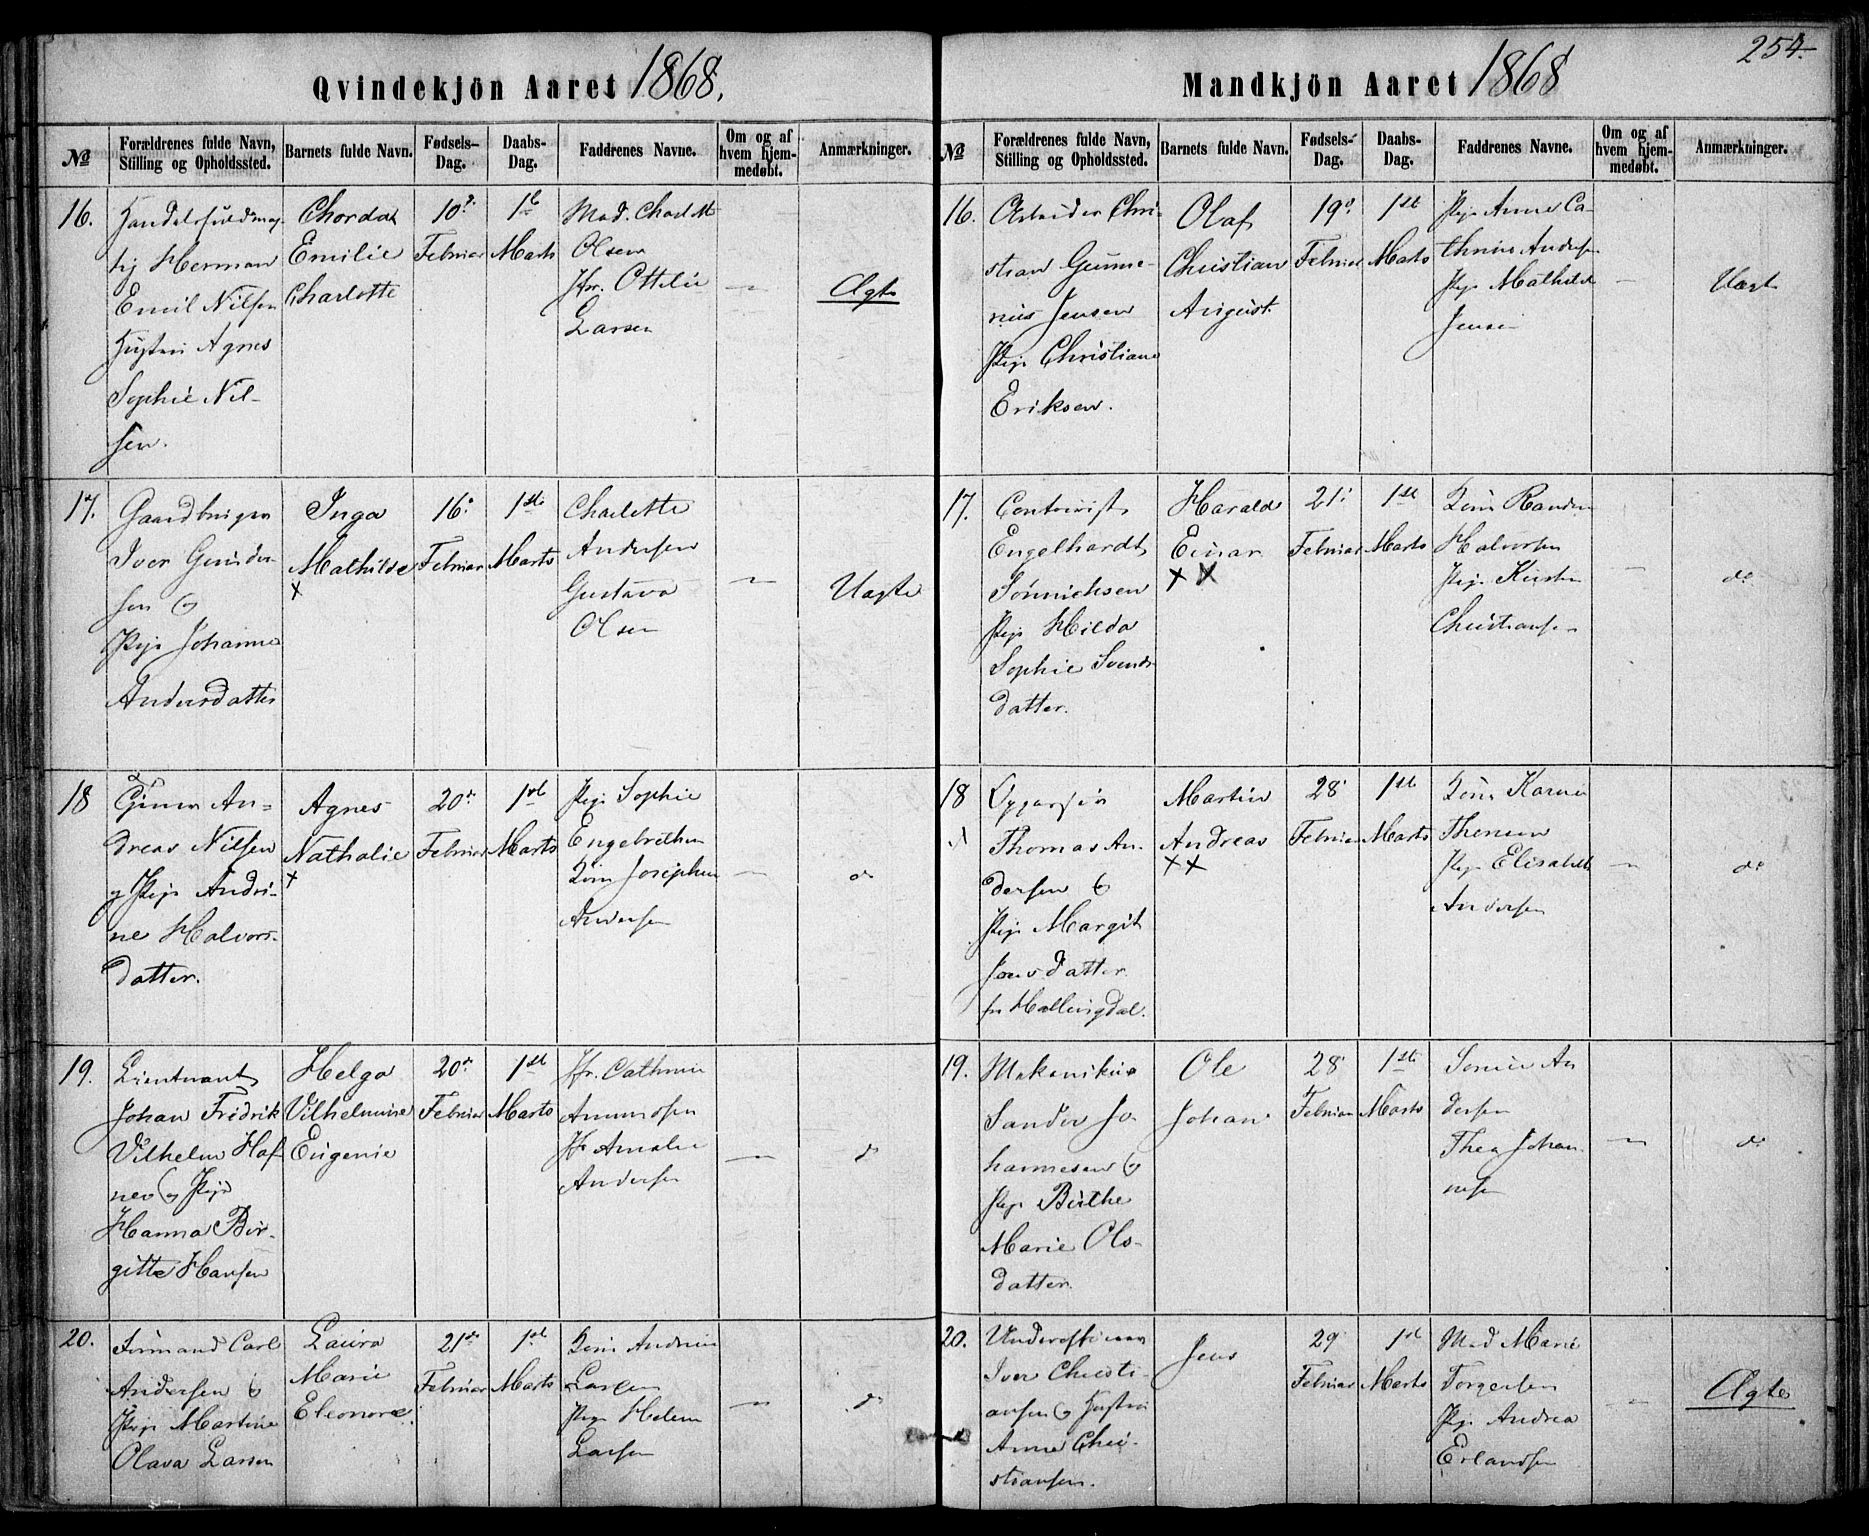 254.
Qvindekjön Aaret 1868.
№
Forældrenes fulde Navn, Stilling og Opholdssted.
Barnets fulde Navn.
Fødsels-Dag.
Daabs-Dag.
Faddrenes Navne.
Om og af hvem hjemmedøbt.
Anmærkninger.
16.
Herman
Emil Nilsen
Hustru Agnes
Sophie Nil-
sen.
Emilie
Charlotte
10
Februar
1
Marts
Mad.
Olsen
Jfr. Ottilie
Larsen
Ægte
17.
Iver Gunder-
sen &
Pige Johanne
Andersdatter
Inga
Mathilde
×
16
Februar
1ste
Marts
Charlotte
Andersen
Gustava
Olsen
Uægte
18
An-
dreas Nilsen
Pige Andri-
ne Halvors-
datter.
Agnes
Nathalie
×
20
Februar
1
Marts
Pige Sophie
Engebrethsen
Josephine
Andersen
do
19.
Lieutnant
Johan Fridrik
Vilhelm Haf-
ner & Pige
Hanna Bir-
gitte Hansen
Helga
Vilhelmine
Eugenie
20
Februar
1
Marts
Jfr. Cathrine
Amundsen
Jfr Amalie
Andersen
do
20.
Formand Carl
Andersen &
Pige Martine
Olava Larsen
Laura
Marie
Eleonore
21
Februar
1
Marts
Kone Andrine
Larsen
Pige Helene
Larsen
do
Mandkjön Aaret 1868
№
Forældrenes fulde Navn, Stilling og Opholdssted.
Barnets fulde Navn.
Fødsels-Dag.
Daabs-Dag.
Faddrenes Navne.
Om og af hvem hjemmedøbt.
Anmærkninger.
16.
Arbeider Chri-
stian Gunne-
rius Jensen
Pige Christiane
Eriksen.
Olaf
Christian
August
19
Februar
1
Marts
Pige Anne Ca-
thrine Andersen
Pige Mathilde
Jensen
Uægte
17.
Contorist
Engelhardt
Sönnichsen
Pige Hilda
Sophie Svends-
datter.
Harald
Einar
××
21
Februar
1
Marts
Kone Randine
Halvorsen
Pige Kirstine
Christiansen
do
18
Thomas An-
dersen &
Pige Margit
Jonsdatter
fr Hallingdal.
Martin
Andreas
××
28
Februar
1
Marts
Kone Karine
Pige Elisabeth
Andersen
do
19.
Mekanikus
Sander Jo-
hannesen &
Pige Birthe
Marie Ols-
datter.
Ole
Johan
28
Februar
1ste
Marts
An
dersen
Thea Johan
nesen
do
20.
Underofficeer
Iver Christi-
ansen & Hustru
Anne Chri-
stiansen.
Jens
29
Februar
1
Marts
Mad Marie
Torgersen
Pige Andrea
Erlandsen
Ægte